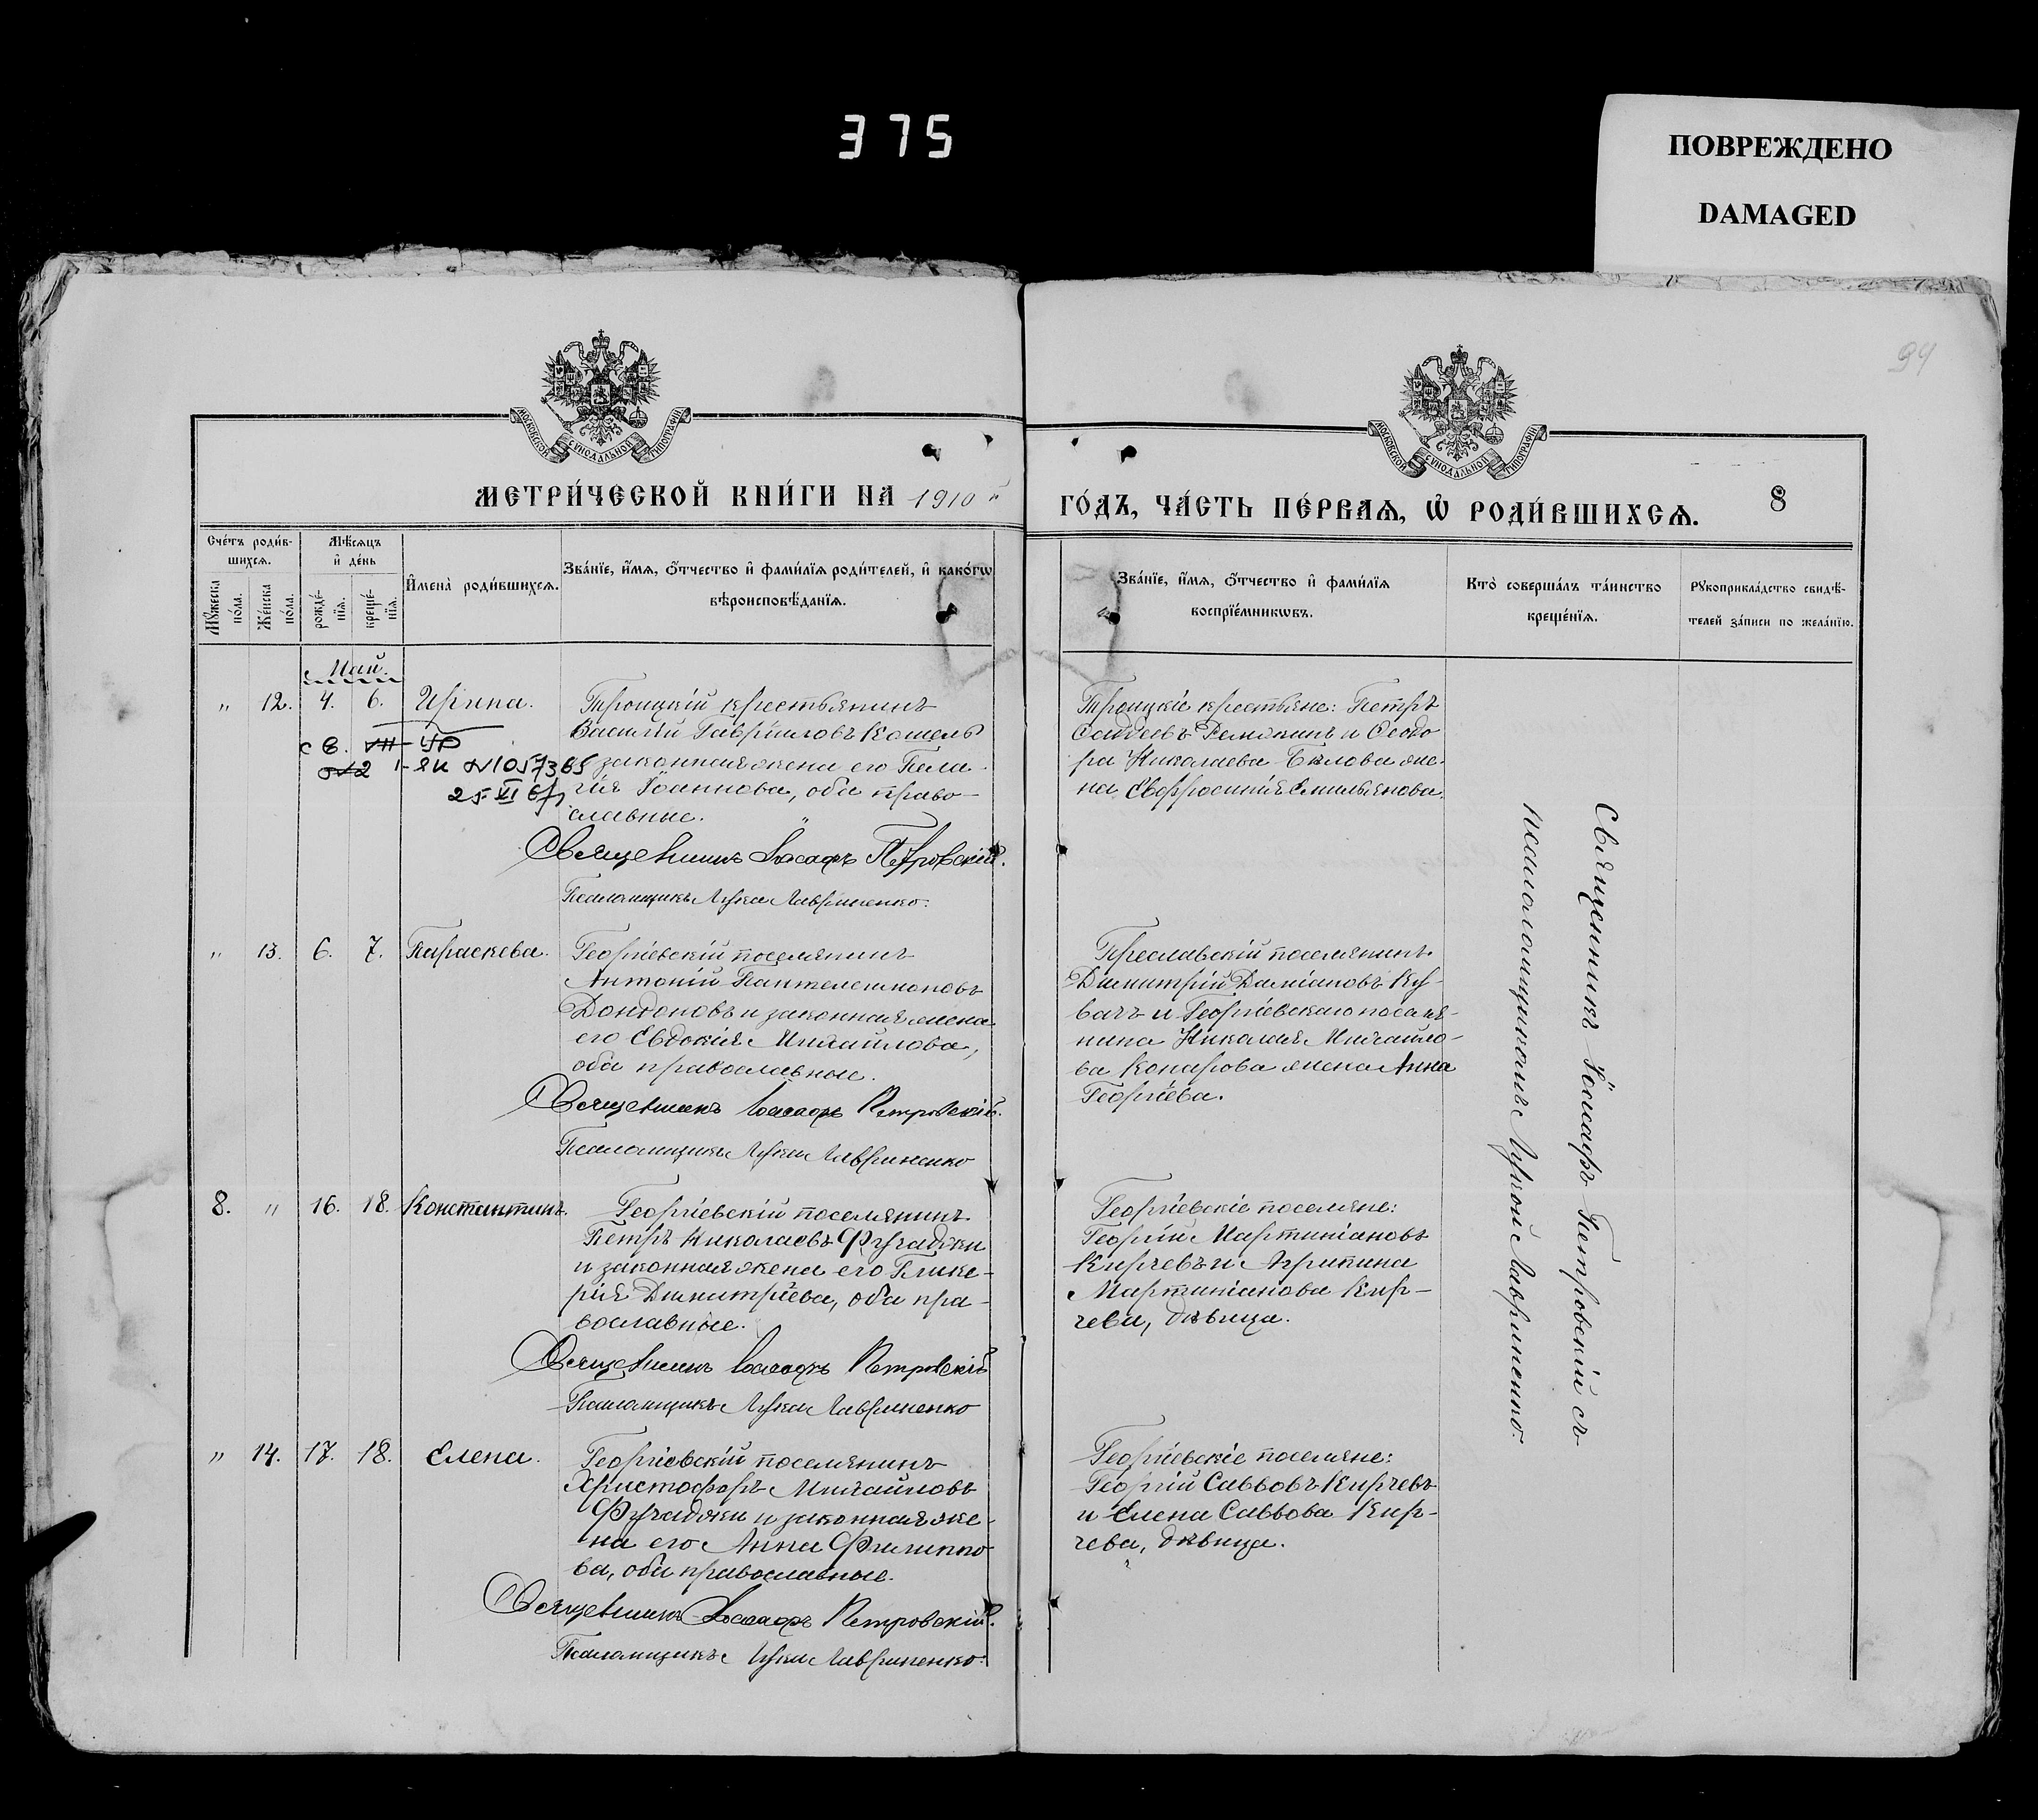 375
ПОВРЕЖДЕНО
DAMAGED
94
МОСКОВСКОЙ СѴНОДАЛЬНОЙ ТИПОГРАФІИ
МОСКОВСКОЙ СѴНОДАЛЬНОЙ ТИПОГРАФІИ
МЕТРИ́ЧЕСКОЙ КНИ́ГИ НА 1910 й
ГО́ДЪ, ЧА́СТЬ ПЕ́РВАѦ, Ѽ РОДИ́ВШИХСѦ.
8
Сче́тъ роди́в-
шихсѧ.
Мꙋ́жеска
по́ла.
Же́нска
по́ла.
Мѣ́сѧцъ
и҆ де́нь
рожде́-
нїѧ.
креще́-
нїѧ.
И҆мена̀ роди́вшихсѧ.
Зва́нїе, и҆́мѧ, ѻ҆́тчество и҆ фами́лїѧ роди́телей, и҆ како́гѡ
вѣроисповѣ́данїѧ.
Зва́нїе, и҆́мѧ, ѻ҆́тчество и҆ фами́лїѧ
воспрїе́мникѡвъ.
Кто̀ соверша́лъ та́инство
креще́нїѧ.
Рꙋкоприкла́дство свидѣ́-
телей за́писи по жела́нїю.
Май.
" 12. 4. 6. Ирина.
Троицкій крестьянинъ
Василій Гавріиловъ Кошель
и законная жена его Пела-
гія Іоаннова, оба право-
славные.
ЯИ №1057365
25-VI
Священникъ Іоасафъ Петровскій.
Псаломщикъ Лука Лавриненко.
Троицкіе крестьяне: Петръ
Фаддеевъ Ремякинъ и Ѳеодо
ра Николаева Бѣлова же-
на Евфросинія Емильянова.
" 13. 6. 7. Параскева.
Георгіевскій поселянинъ
Антоній Пантелеимоновъ
Дондоновъ и законная жена
его Евдокія Михайлова,
оба православные.
Священникъ Іоасафъ Петровскій.
Псаломщикъ Лука Лавриненко
Преславскій поселянинъ
Димитрій Даміановъ Ку-
вачъ и Георгіевскаго поселя-
нина Николая Михайло-
ва Конарова жена Анна
Георгіева.
8. " 16. 18. Константинъ.
Георгіевскій поселянинъ
Петръ Николаевъ Фучаджи
и законная жена его Глике-
рія Димитріева, оба пра-
вославные.
Священникъ Іоасафъ Петровскій
Псаломщикъ Лука Лавриненко
Георгіевскіе поселяне:
Георгій Мартиніановъ
Кирчевъ и Агрипина
Мартиніанова Кир-
чева, дѣвица.
" 14. 17. 18. Елена.
Георгіевскій поселянинъ
Христофоръ Михайловъ
Фучаджи и законная же-
на его Анна Филиппо
ва, оба православные.
Священникъ Іоасафъ Петровскій.
Псаломщикъ Лука Лавриненко.
Георгіевскіе поселяне:
Георгій Савовъ Кирчевъ
и Елена Саввова Кир-
чева, дѣвица.
Священникъ Іоасафъ Петровскій съ
псаломщикомъ Лукой Лавриненко.